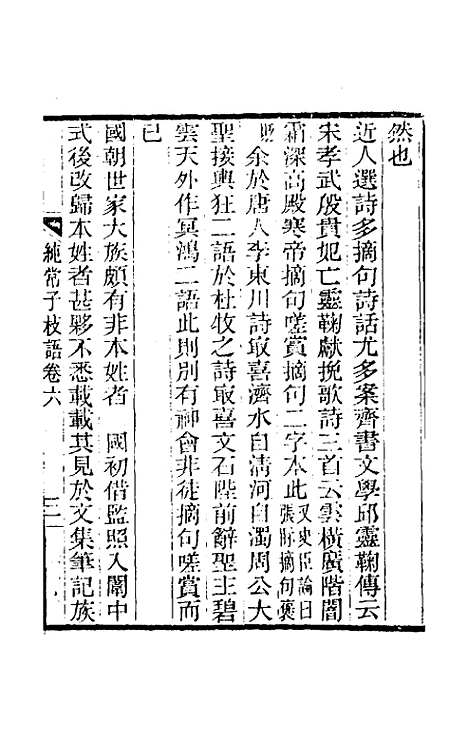 然也
近人選詩多摘句詩話尤多案齊書文學邱靈鞠傳云
宋孝武殷貴妃亡靈鞠獻挽歌詩三首云雲橫廣階闇
霜深高殿寒帝摘句嗟賞摘句二字本此又史臣論曰張眎摘句褒
貶余於唐人李東川詩最喜濟水自清河自濁周公大
聖接輿狂二語於杜牧之詩最喜文石陛前辭聖主碧
雲天外作冥鴻二語此則別有神會非徒摘句嗟賞而
已
國朝世家大族頗有非本姓者 國初借監照入闈中
式後改歸本姓者甚夥不悉載載其見於文集筆記族
純常子枝語卷六